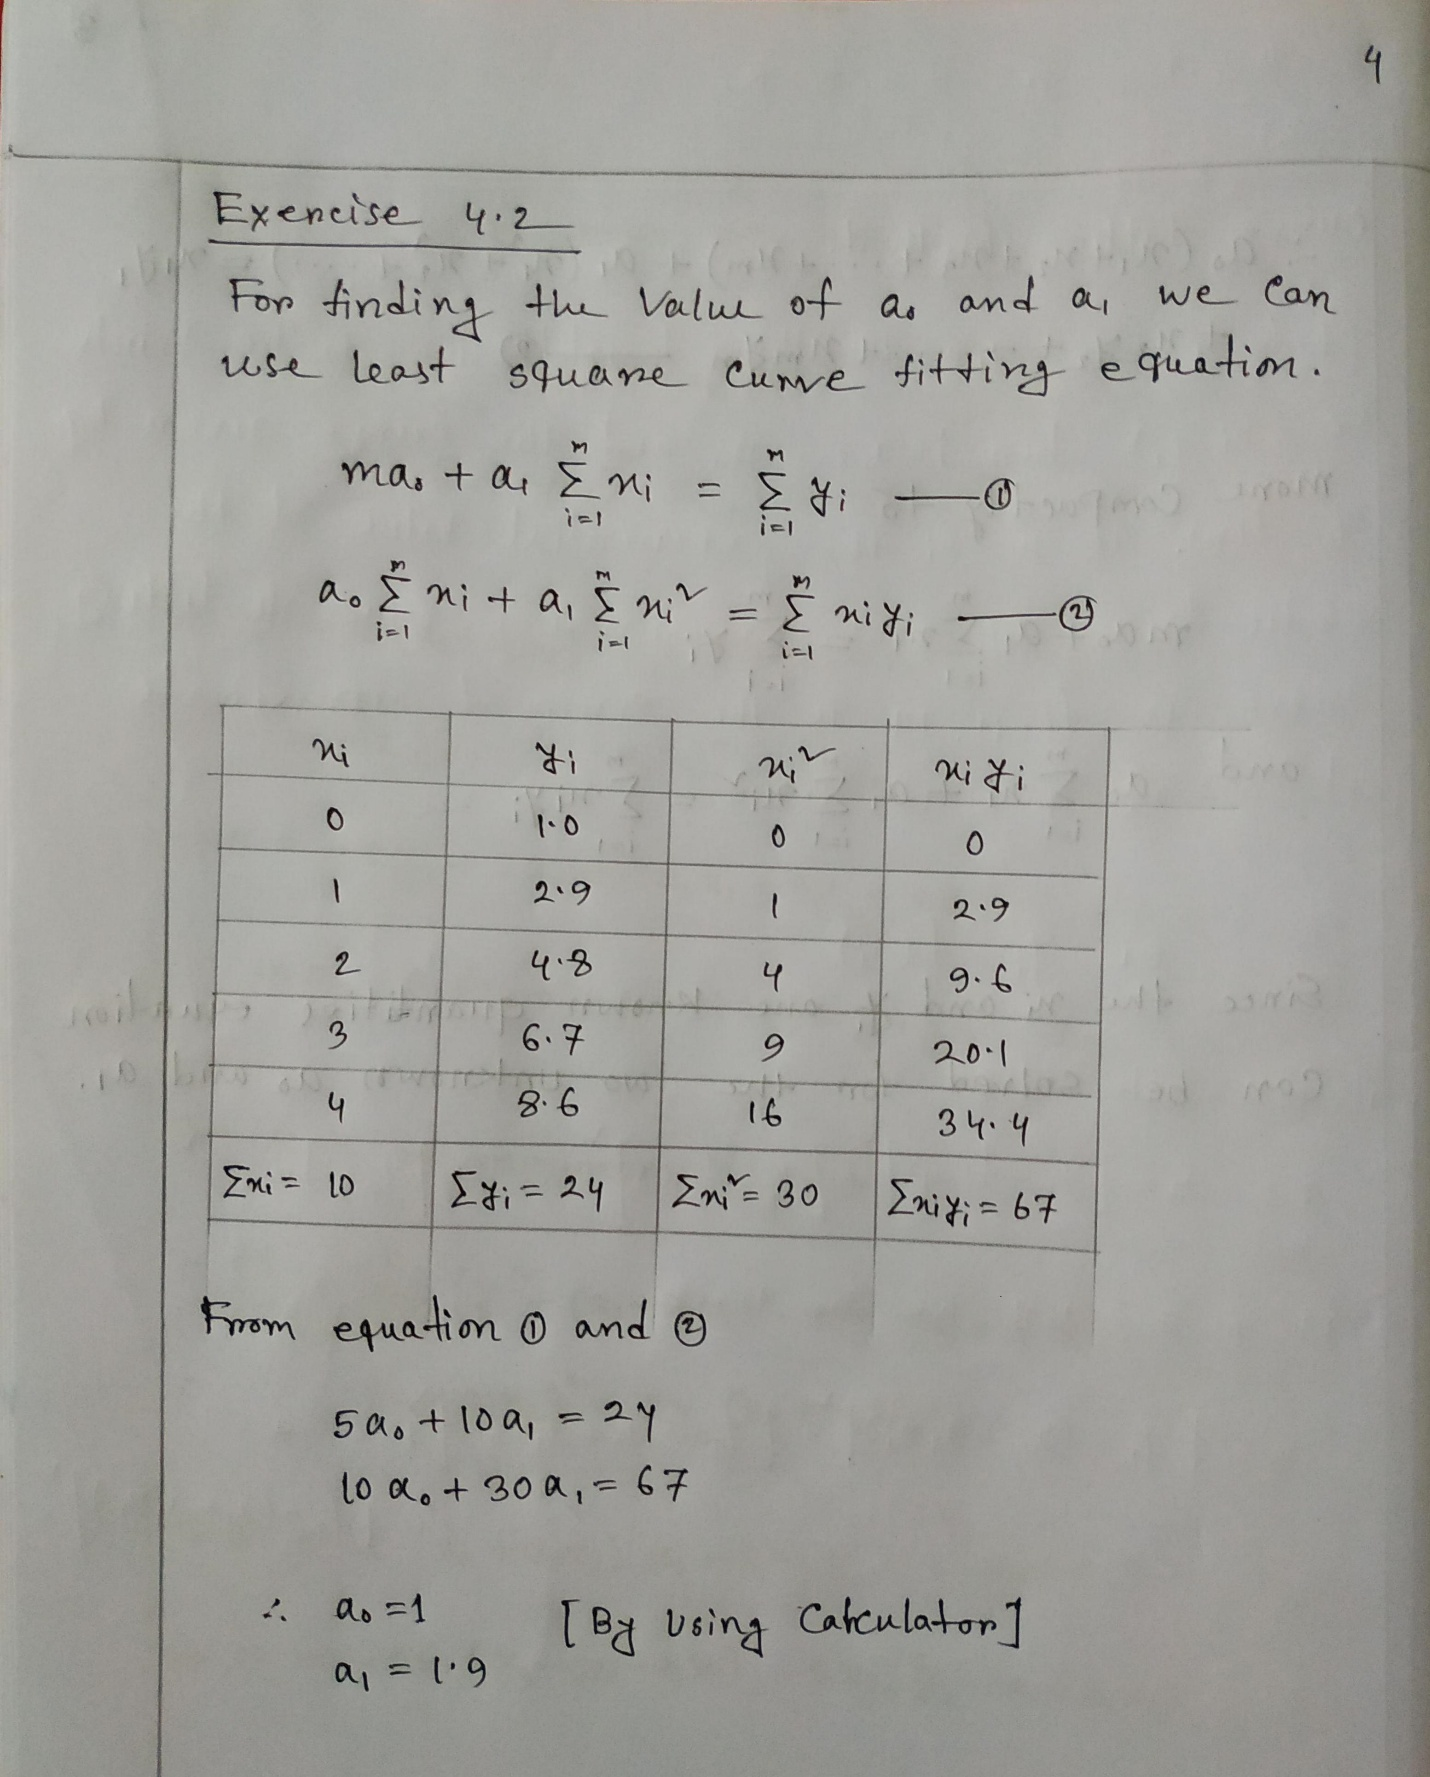 4
Exercise 4.2
For finding the Value of a₀ and a₁ we can
use least square curve fitting equation.
ma₀ + a₁ Σᵢ₌₁ᵐ xᵢ = Σᵢ₌₁ᵐ yᵢ —①
a₀ Σᵢ₌₁ᵐ xᵢ + a₁ Σᵢ₌₁ᵐ xᵢ² = Σᵢ₌₁ᵐ xᵢyᵢ —②
xᵢ yᵢ xᵢ² xᵢyᵢ
0 1.0 0 0
1 2.9 1 2.9
2 4.8 4 9.6
3 6.7 9 20.1
4 8.6 16 34.4
Σxᵢ = 10 Σyᵢ = 24 Σxᵢ² = 30 Σxᵢyᵢ = 67
From equation ① and ②
5a₀ + 10a₁ = 24
10a₀ + 30a₁ = 67
∴ a₀ = 1 [By Using Calculator]
a₁ = 1.9